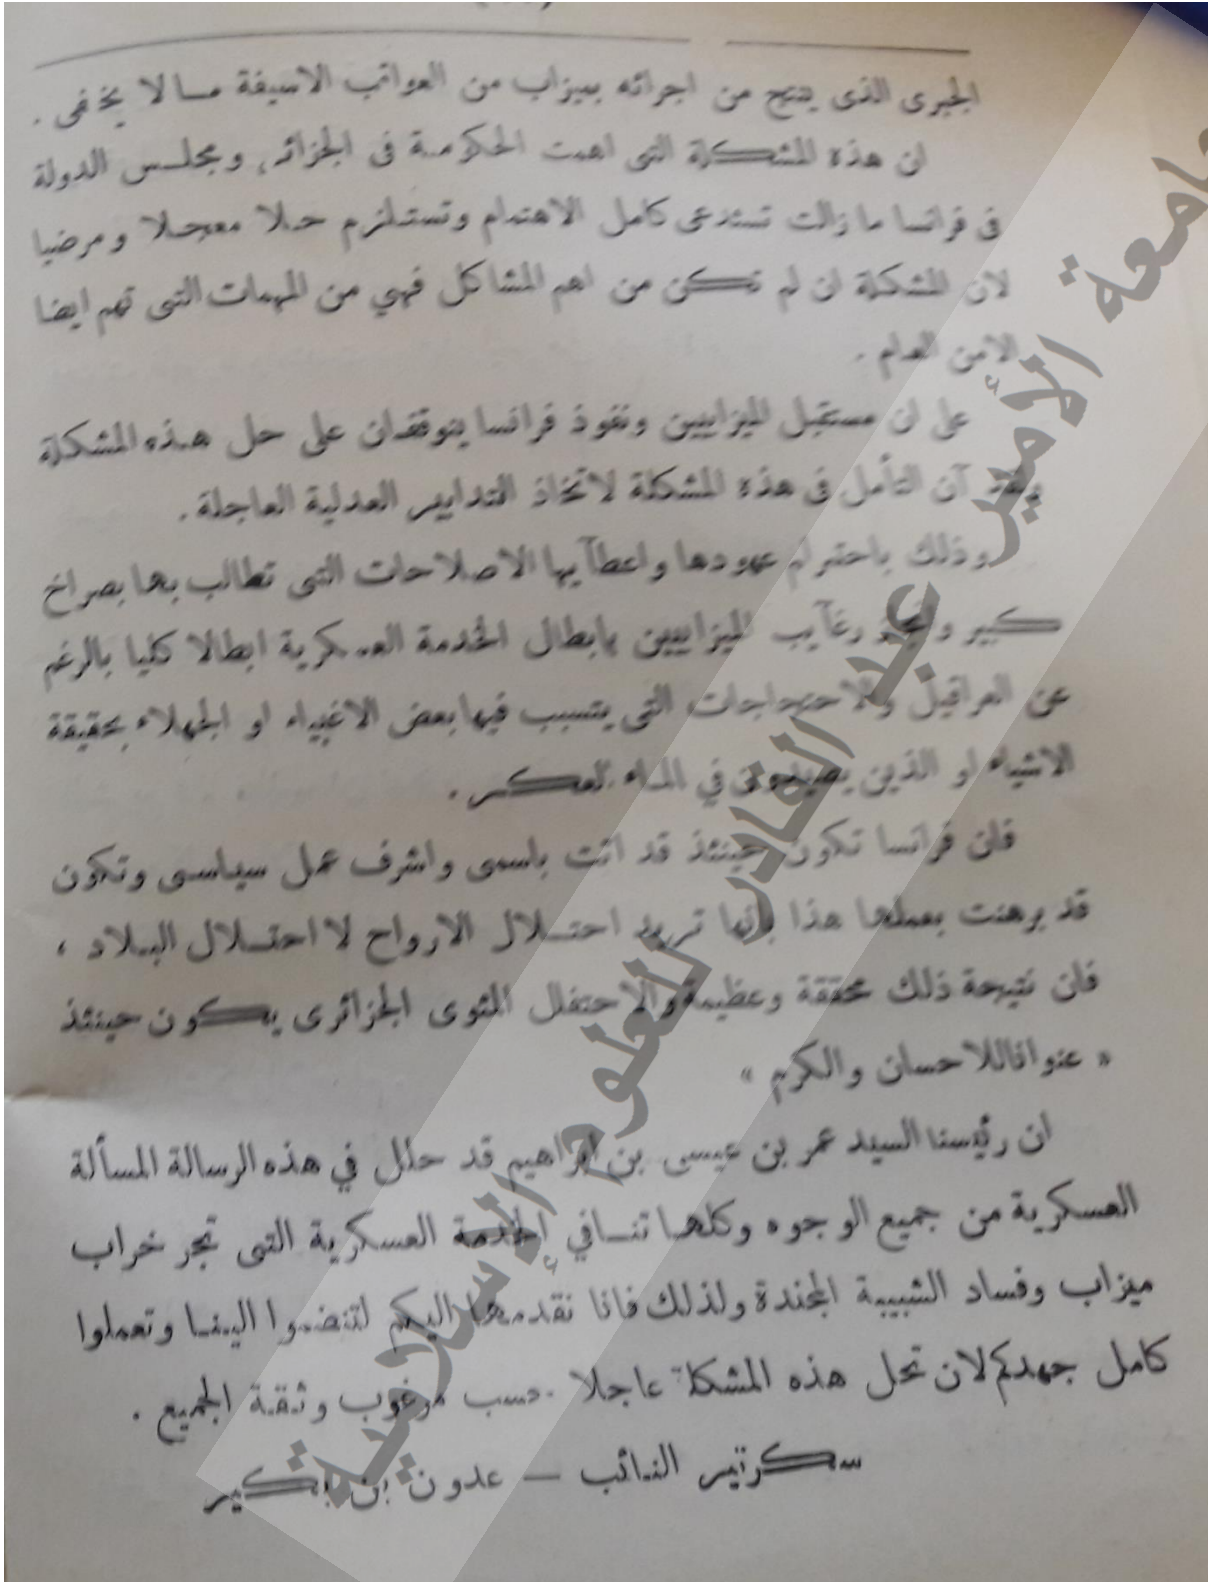 الجبرى الذى ينتج من اجرائه بميزاب من العواقب الاسيفة مالا يخفى .
ان هذه المشكلة التى اهمت الحكومة فى الجزائر، ومجلس الدولة
فى فرانسا ما زالت تستدعى كامل الاهتمام وتستلزم حلا معجلا ومرضيا
لان المشكلة ان لم تكن من اهم المشاكل فهي من المهمات التى تهم ايضا
الامن العام .
على ان مستقبل الميزابيين ونفوذ فرانسا يتوقفان على حل هذه المشكلة
وقد آن التأمل فى هذه المشكلة لاتخاذ التدابير العدلية العاجلة .
وذلك باحترام عهودها واعطآيها الاصلاحات التى تطالب بها بصراخ
كبير رغآيب الميزابيين بابطال الخدمة العسكرية ابطالا كليا بالرغم
عن العراقيل والاحتجاجات التى يتسبب فيها بعض الاغبياء او الجهلاء بحقيقة
الاشياء او الذين يصيدون في الماء العكر .
فان فرانسا تكون حينئذ قد اتت باسمى واشرف عمل سياسى وتكون
قد برهنت بعملها هذا بانها تريد احتلال الارواح لا احتلال البلاد ،
فان نتيجة ذلك محققة وعظيمة والاحتفال المئوى الجزائرى يكون حينئذ
« عنوانا للاحسان والكرم »
ان رئيسنا السيد عمر بن عيسى بن ابراهيم قد حلل في هذه الرسالة المسألة
العسكرية من جميع الوجوه وكلها تنافي الخدمة العسكرية التى تجر خراب
ميزاب وفساد الشبيبة المجندة ولذلك فانا نقدمها اليكم لتنضموا الينا وتعملوا
كامل جهدكم لان تحل هذه المشكلة عاجلا حسب مرغوب وثقة الجميع .
سكرتير النائب — عدون بن بكير
جامعة الأمير عبد القادر للعلوم الإسلامية